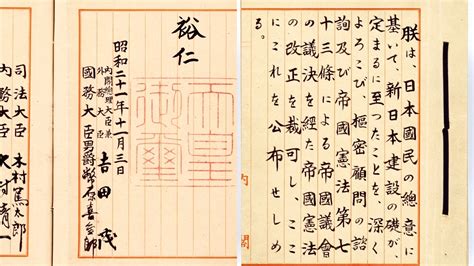 朕は、日本國民の總意に
基いて、新日本建設の礎が、
定まるに至つたことを、深く
よろこび、樞密顧問の諮
詢及び帝國憲法第七
十三條による帝國議會
の議決を経た帝國憲法
の改正を裁可し、ここ
にこれを公布せしめ
る。
内閣
裕仁
天皇
御璽
昭和二十一年十一月三日
内閣總理大臣兼
外務大臣 吉田茂
國務大臣 男爵幣原喜重郎
司法大臣 木村篤太郎
内務大臣 大村清一